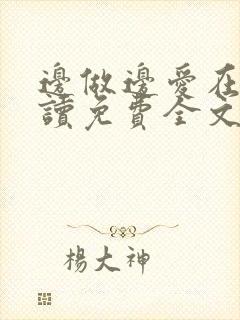 邊做邊愛在
讀免費全文
楊大神